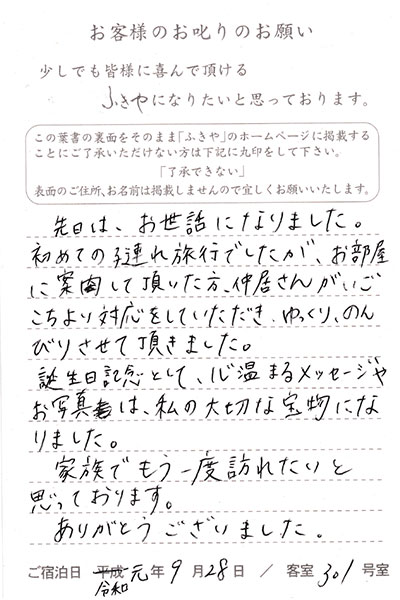 お客様のお叱りのお願い
少しでも皆様に喜んで頂ける
ふきやになりたいと思っております。
この葉書の裏面をそのまま「ふきや」のホームページに掲載する
ことにご了承いただけない方は下記に丸印をして下さい。
「了承できない」
表面のご住所、お名前は掲載しませんので宜しくお願いいたします。
先日は、お世話になりました。
初めての子連れ旅行でしたが、お部屋
に案内して頂いた方、仲居さんがいごご
こちより対応をしていただき、ゆっくり、のん
びりさせて頂きました。
誕生日記念として、心温まるメッセージや
お写真は、私の大切な宝物にな
りました。
家族でもう一度訪れたいと
思っております。
ありがとうございました。
ご宿泊日 平成 令和 元年 9月28日 / 客室 301号室